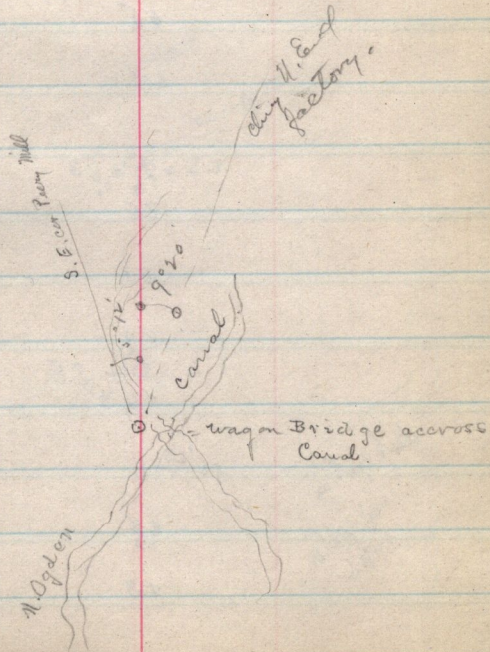 Chim N. End
factory.
S. E. cor Peery Mill
9° 20'
5° 12'
Canal
wagon Bridge accross
Canal.
N. Ogden